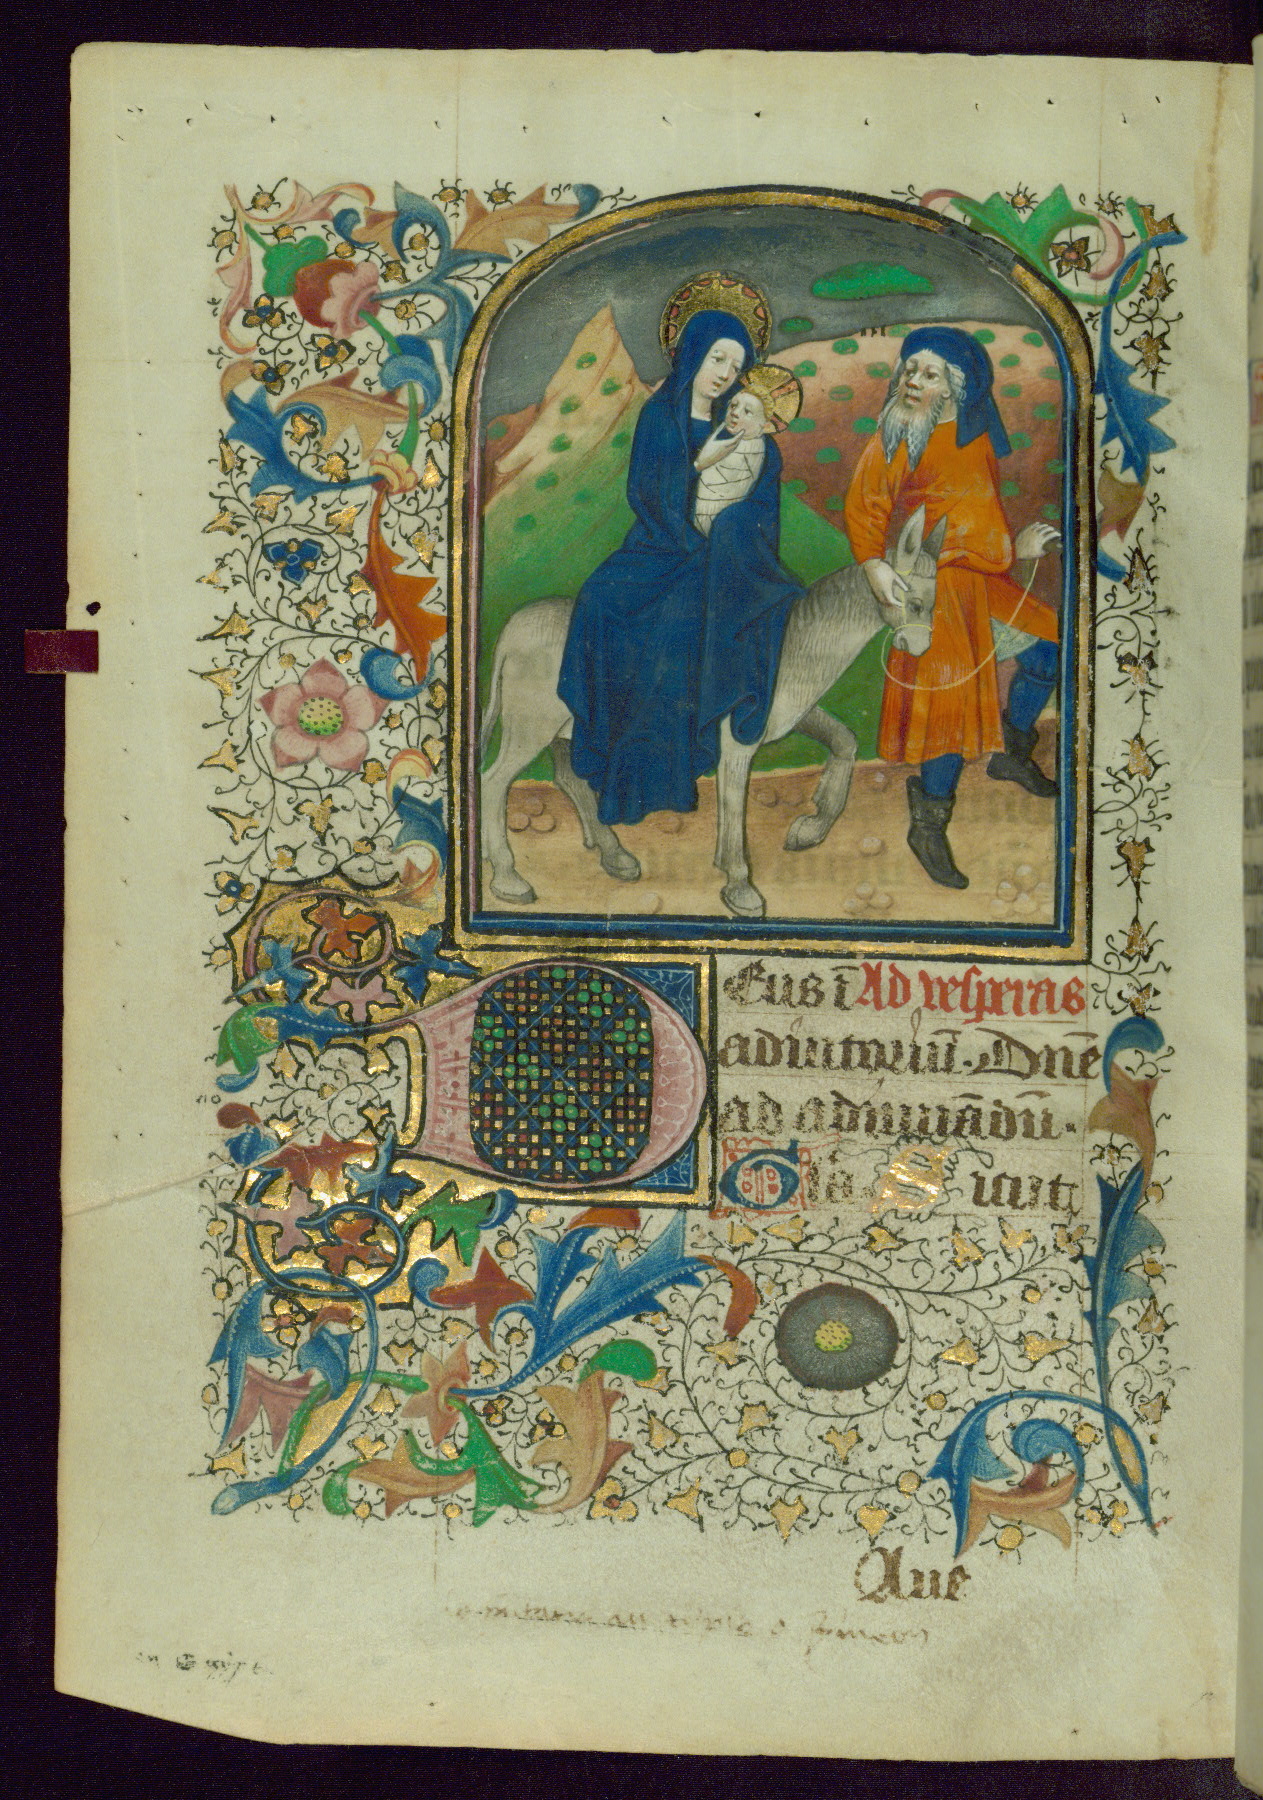 Deus ī Ad vesperas
adiutoriū. Dn̄e
ad adiuuādū.
Gl̄a. icut
Aue